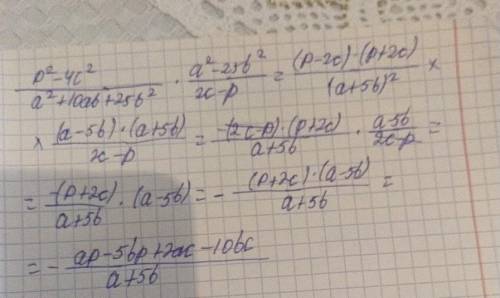 (p²-4c²)/(a²+10ab+25b²) · (a²-25b²)/(2c-p) = ((p-2c)·(p+2c))/(a+5b)² ×
× ((a-5b)·(a+5b))/(2c-p) = (-(2c-p)·(p+2c))/(a+5b) · (a-5b)/(2c-p) =
= (-(p+2c))/(a+5b) · (a-5b) = - ((p+2c)·(a-5b))/(a+5b) =
= - (ap-5bp+2ac-10bc)/(a+5b)